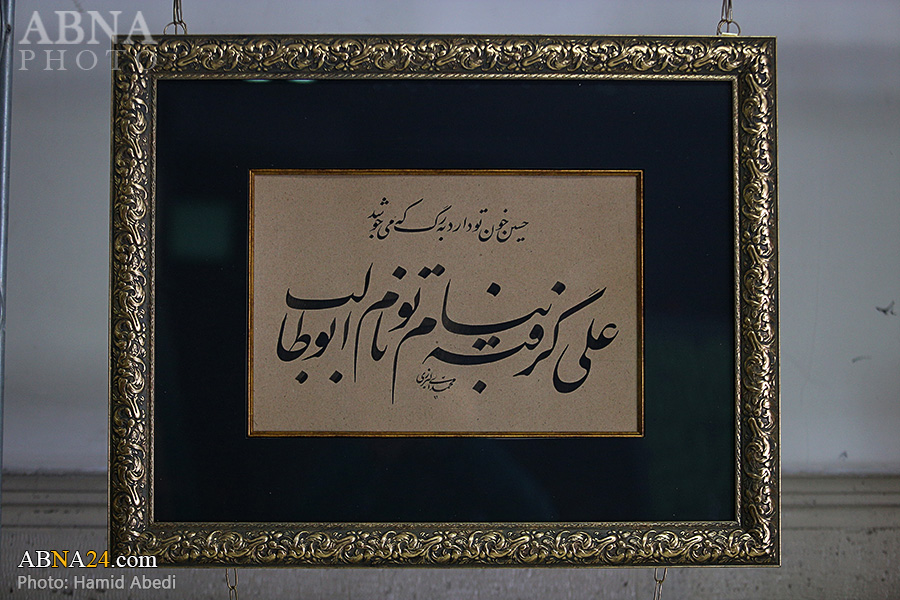 ABNA
PHOTO
حسین خون تو دارد به رگ که می جوشد
علی گرفته ز نام تو نام ابوطالب
ABNA24.com
Photo: Hamid Abedi